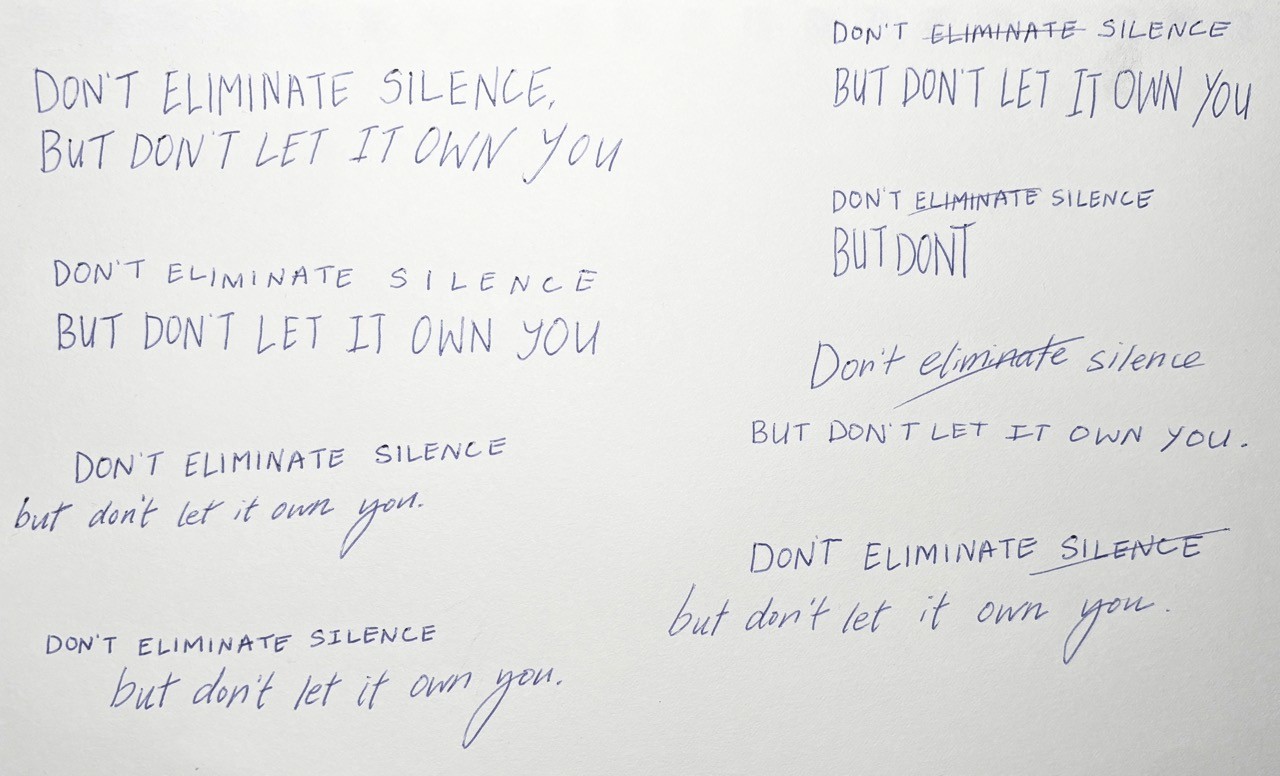 DON'T ELIMINATE SILENCE,
BUT DON'T LET IT OWN YOU
DON'T ELIMINATE SILENCE
BUT DON'T LET IT OWN YOU
DON'T ELIMINATE SILENCE
but don't let it own you.
DON'T ELIMINATE SILENCE
but don't let it own you.
DON'T ELIMINATE SILENCE
BUT DON'T LET IT OWN YOU
DON'T ELIMINATE SILENCE
BUT DONT
Don't eliminate silence
BUT DON'T LET IT OWN YOU.
DON'T ELIMINATE SILENCE
but don't let it own you.